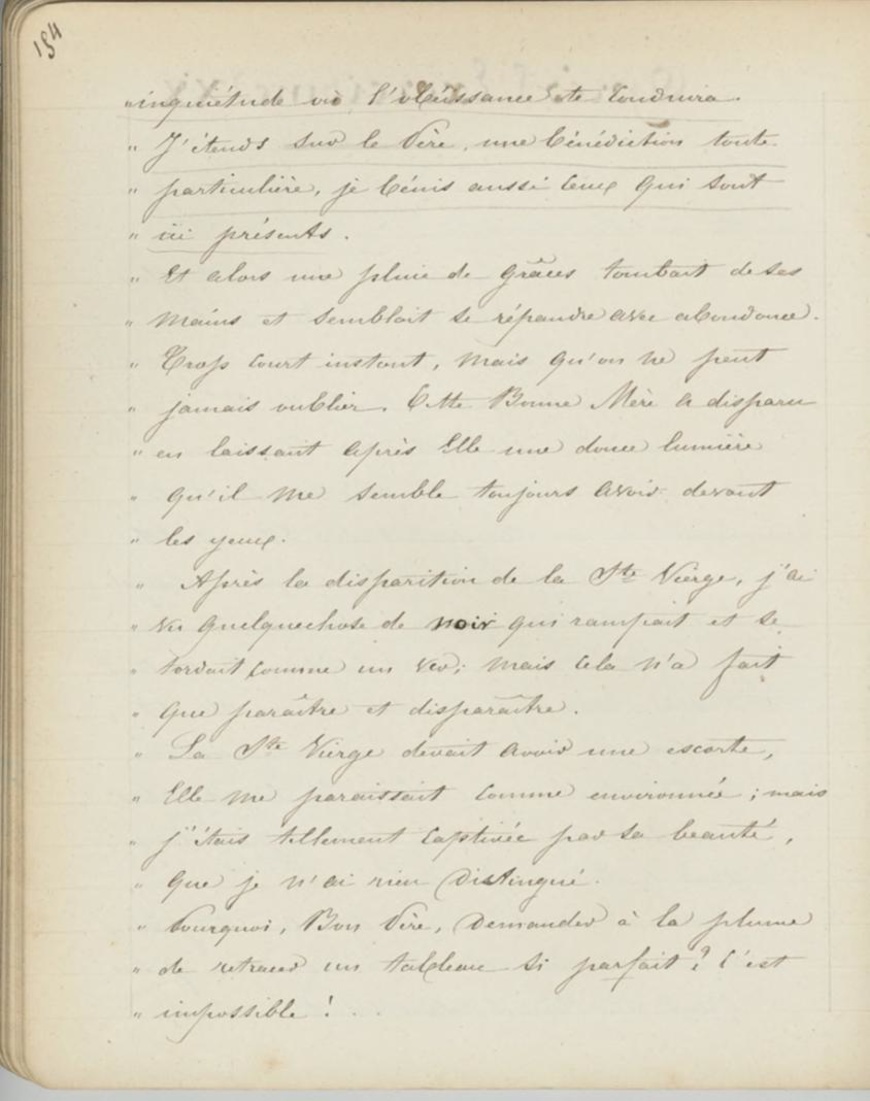 154
"inquiétude où l'obéissance te conduira.
" J'étends sur le Père, une bénédiction toute
" particulière, je bénis aussi ceux qui sont
" ici présents.
" Et alors une pluie de grâces tombait de ses
" mains et semblait se répandre avec abondance.
" Trop court instant, mais qu'on ne peut
" jamais oublier. Cette Bonne Mère a disparu
" en laissant après Elle une douce lumière
" qu'il me semble toujours avoir devant
" les yeux.
" Après la disparition de la Ste Vierge, j'ai
" vu quelquechose de noir qui rampait et se
" tordait comme un ver; mais cela n'a fait
" que paraître et disparaître.
" La Ste Vierge devait avoir une escorte,
" Elle me paraissait comme environnée ; mais
" j'étais tellement captivée par sa beauté,
" que je n'ai rien distingué.
" Pourquoi, Bon Père, demander à la plume
" de retracer un tableau si parfait ? C'est
" impossible ! . .